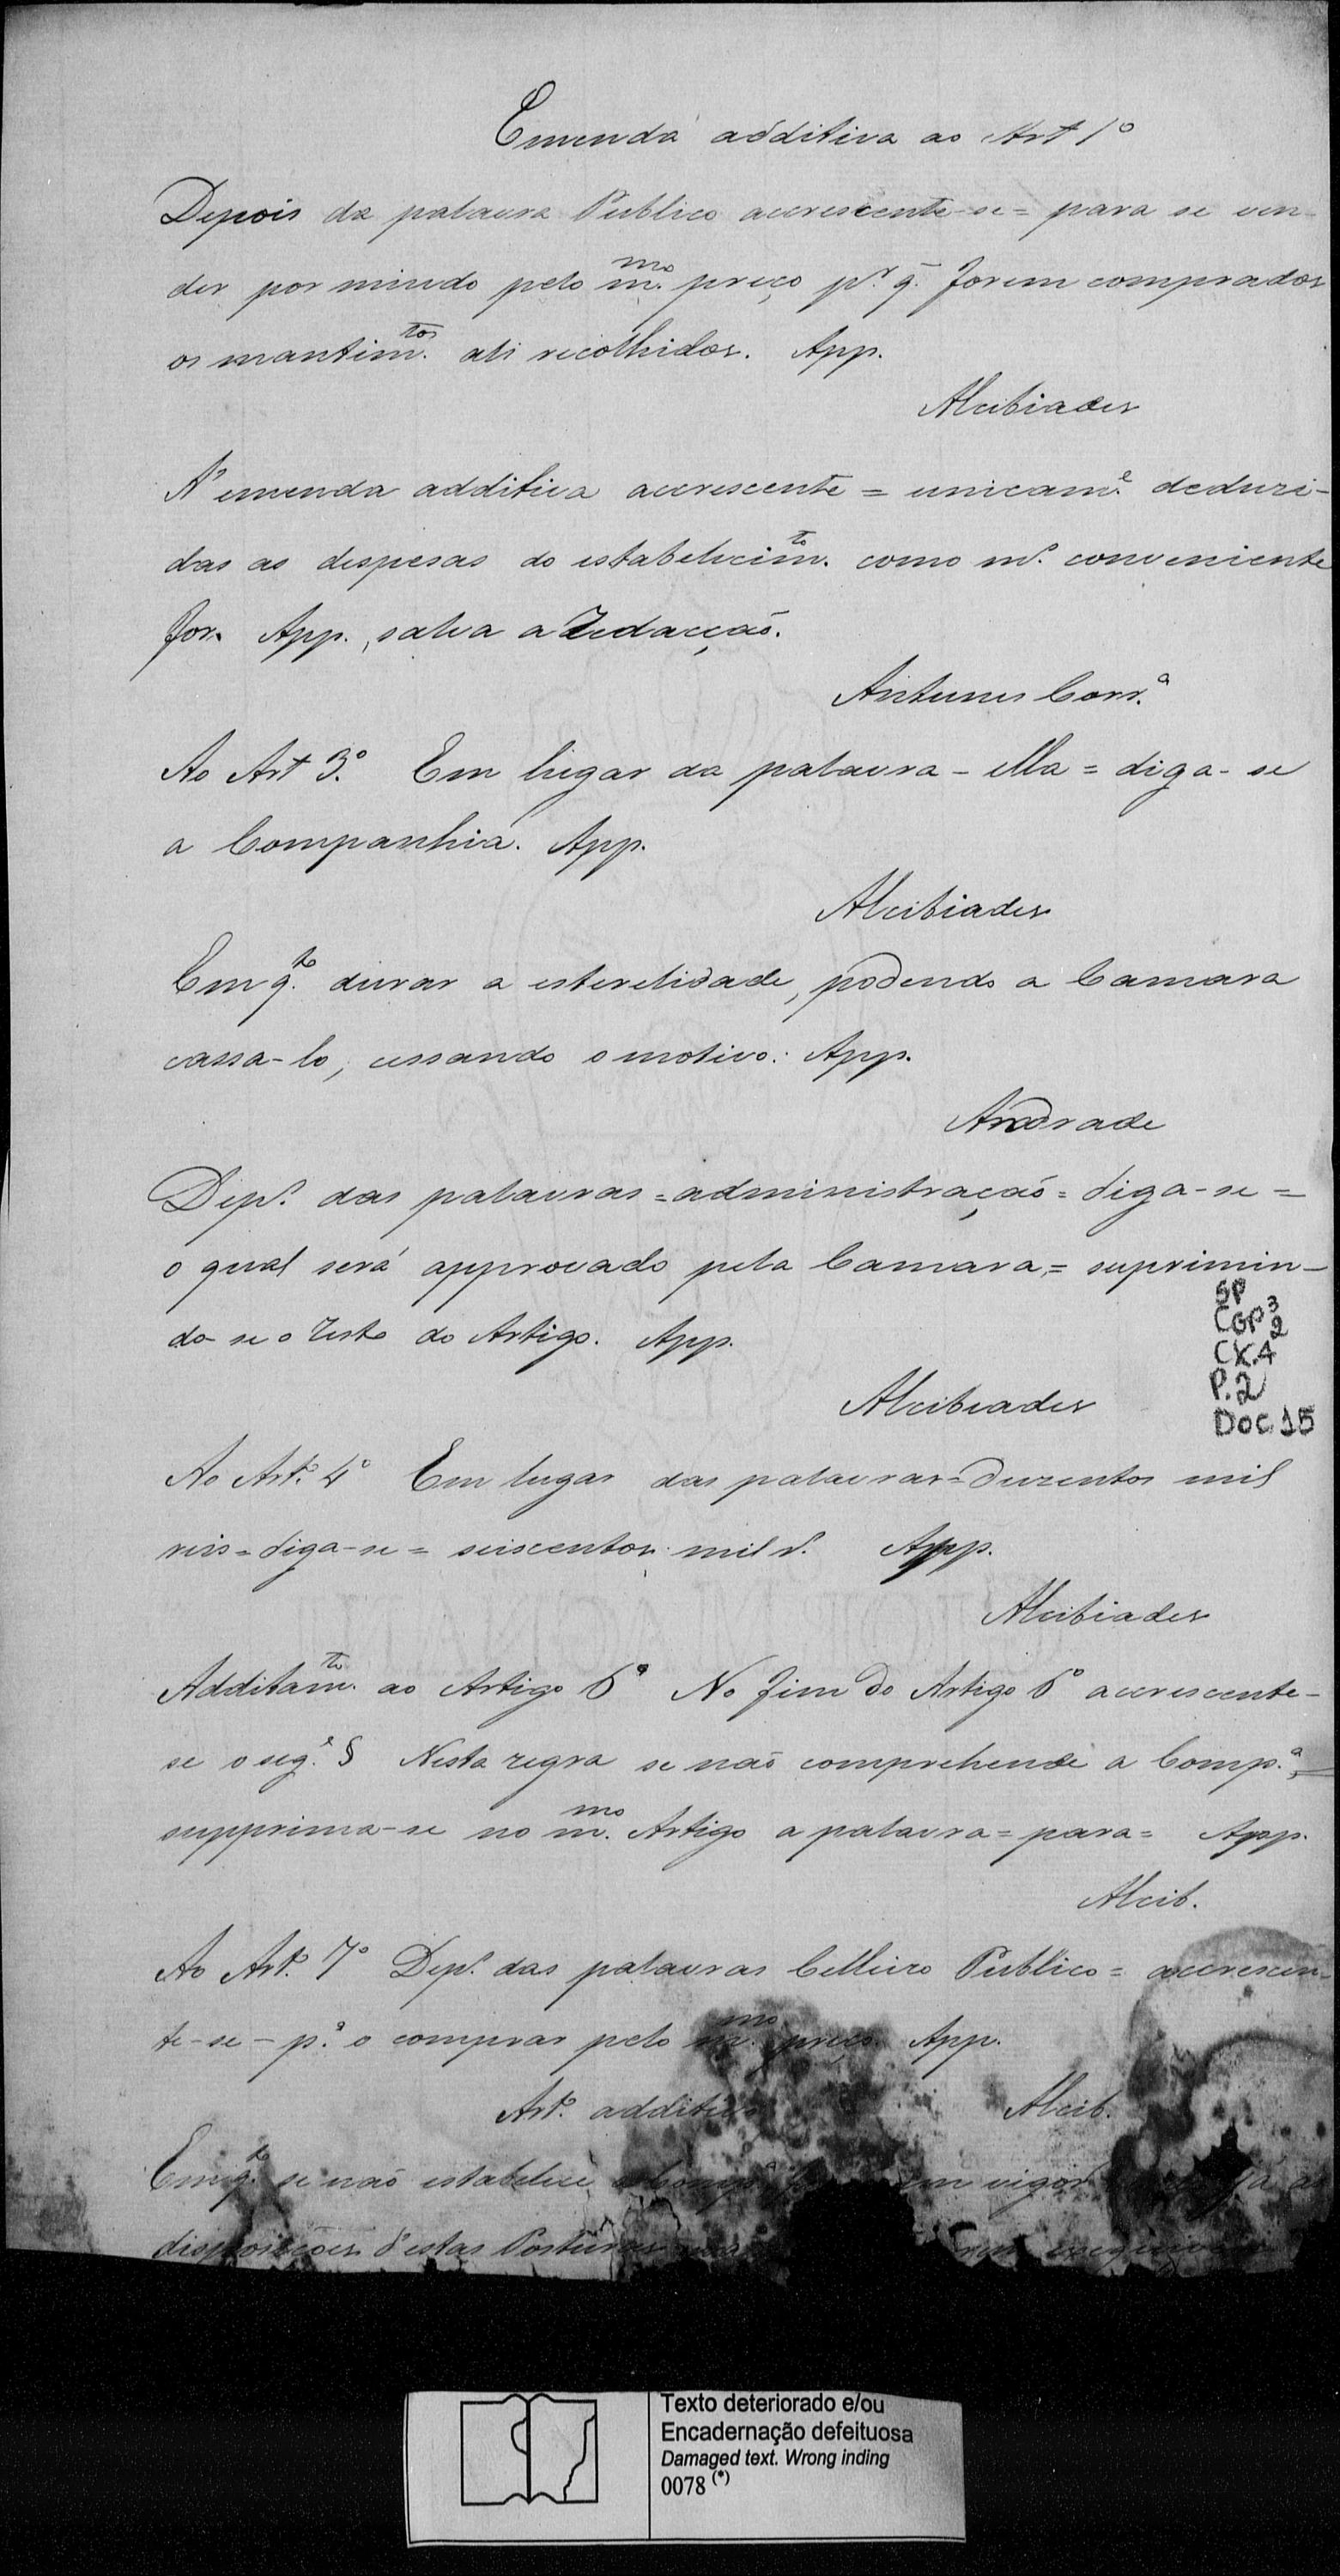 Emenda additiva ao Art 1º
Depois da palavra Publico accrescente-se = para se ven-
der por miudo pelo m.mo preço pr. q̃ forem comprados
os mantim.tos ali recolhidos. App.
Alcibiades
A' emenda additiva accrescente = unicam.e deduzi-
das as despesas do estabelecim.to como mr. conveniente
for. App., salva a redacção.
Antunes Corr.a
Ao Art 3º. Em lugar da palavra - ella = diga-se
a Companhia. App.
Alcibiades
Em q.to durar a esterelidade, podendo a Camara
cassa-lo, cessando o motivo. App.
Andrade
Dep.s das palavras = administração = diga-se =
o qual será approvado pela Camara, = suprimin-
do-se o resto do Artigo. App.
SP
CGP3
2
CX.4
P.2
DOC.15
Alcibiades
Ao Art.º 4º Em lugar das palavras = duzentos mil
reis = diga-se = seiscentos mil r.s App.
Alcibiades
Additam.to ao Artigo 6º No fim do Artigo 6º accrescente-
se o seg.e § Nesta regra se não comprehende a Comp.a, =
supprima-se no m.mo Artigo a palavra = para = App.
Alcib.
Ao Art.º 7º Dep.s das palavras Celleiro Publico = accrescen-
te-se - p.a o comprar pelo m.mo preço. App.
Art.º additivo Alcib.
Em q.to se não estabelece a Comp.a em vigor
disposições d'estas Posturas
Texto deteriorado e/ou
Encadernação defeituosa
Damaged text. Wrong inding
0078 (*)